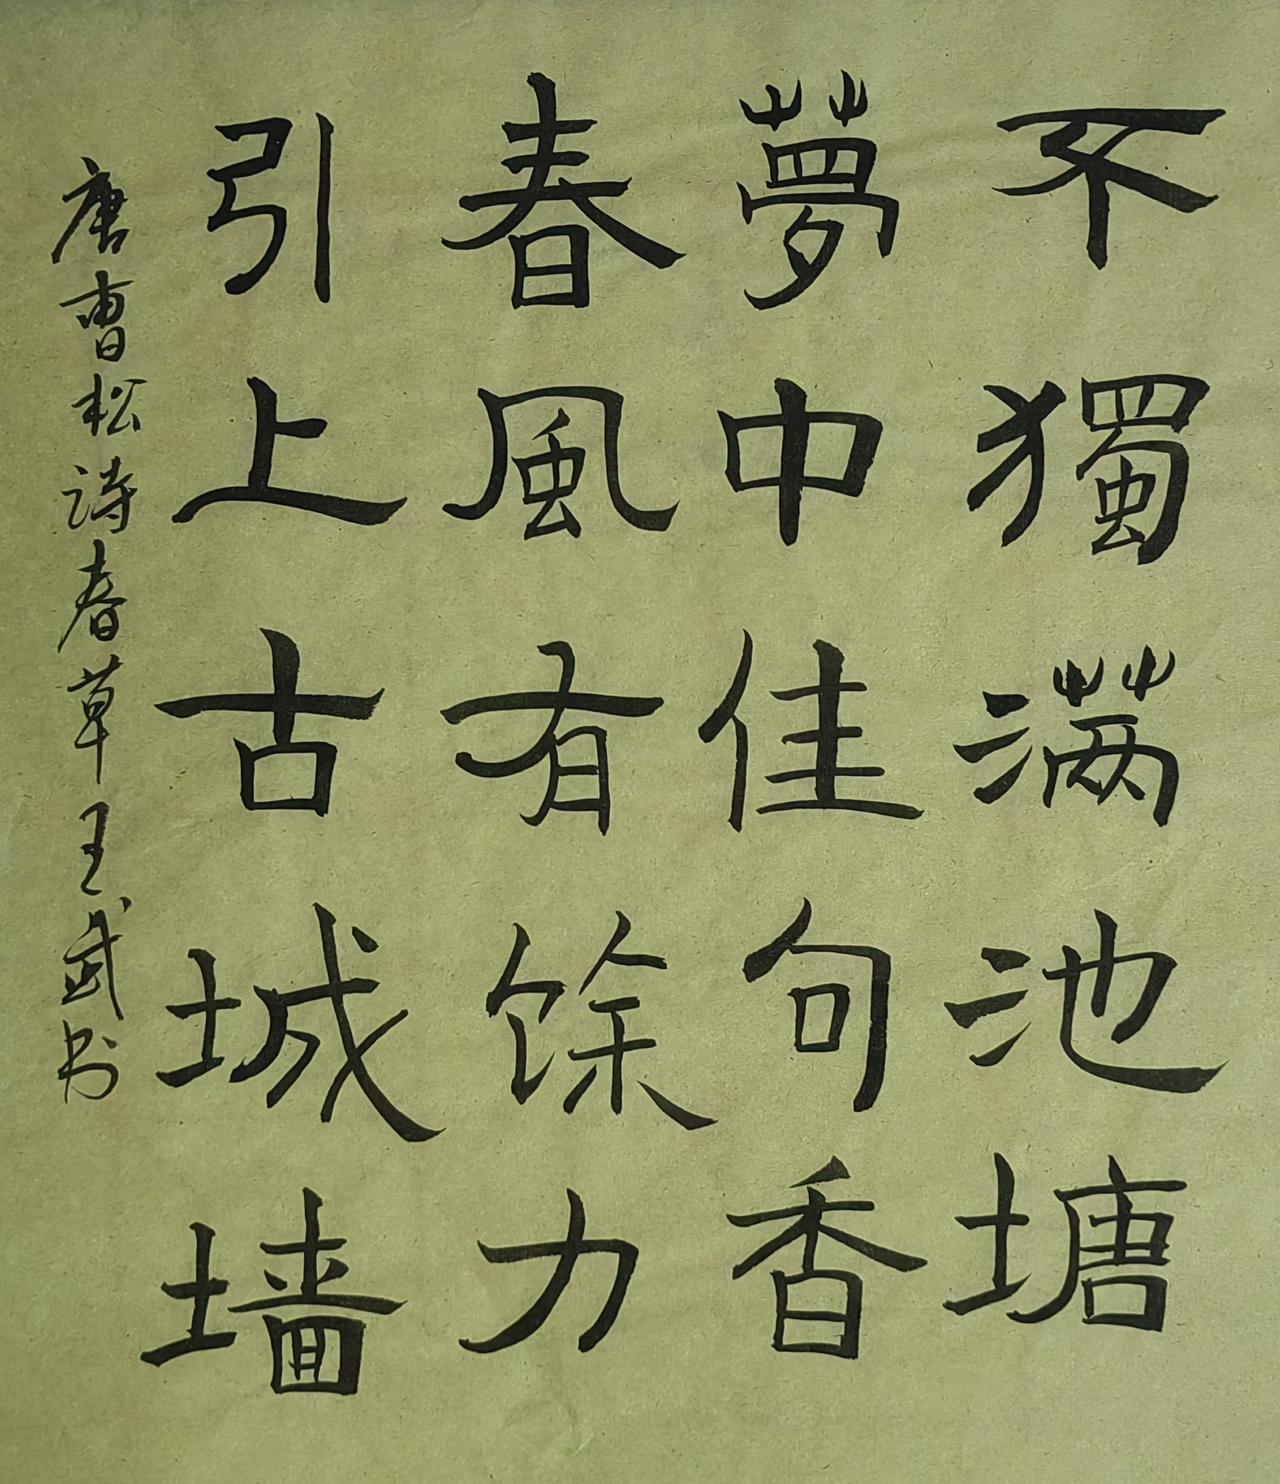 不獨满池塘
夢中佳句香
春風有馀力
引上古城墙
唐曹松诗春草王武书